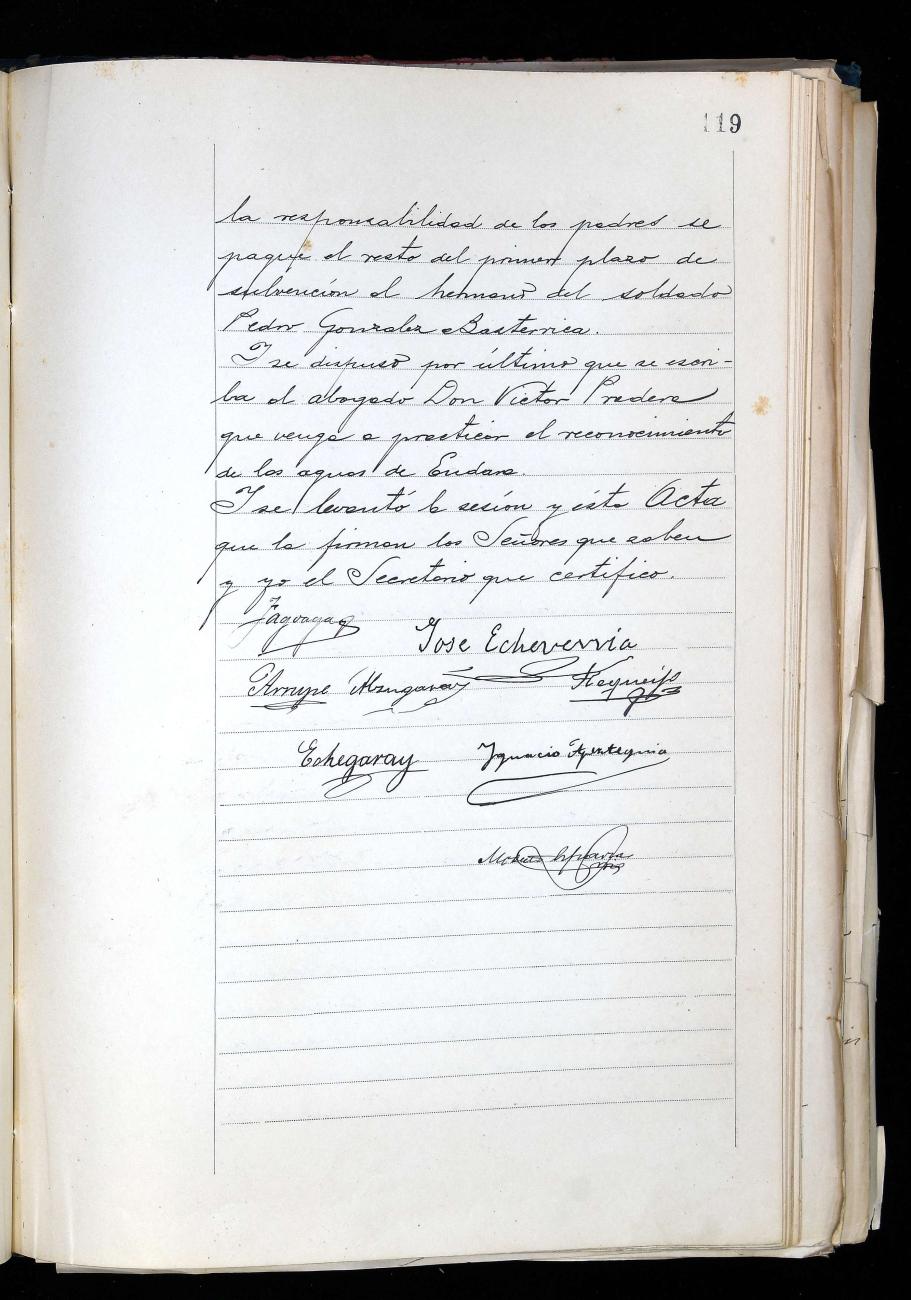 119
la responsabilidad de los padres se
pague el resto del primer plazo de
subvención al hermano del soldado
Pedro Gonzalez Basterrica.
Y se dispuso por último que se escri-
ba al abogado Don Victor Pradera
que venga a practicar el reconocimiento
de las aguas de Endara.
Y se levantó la sesión y ésta Acta
que la firman los Señores que saben
y yo el Secretario que certifico.
Jose Echeverria
Arrupe
Echegaray Ignacio